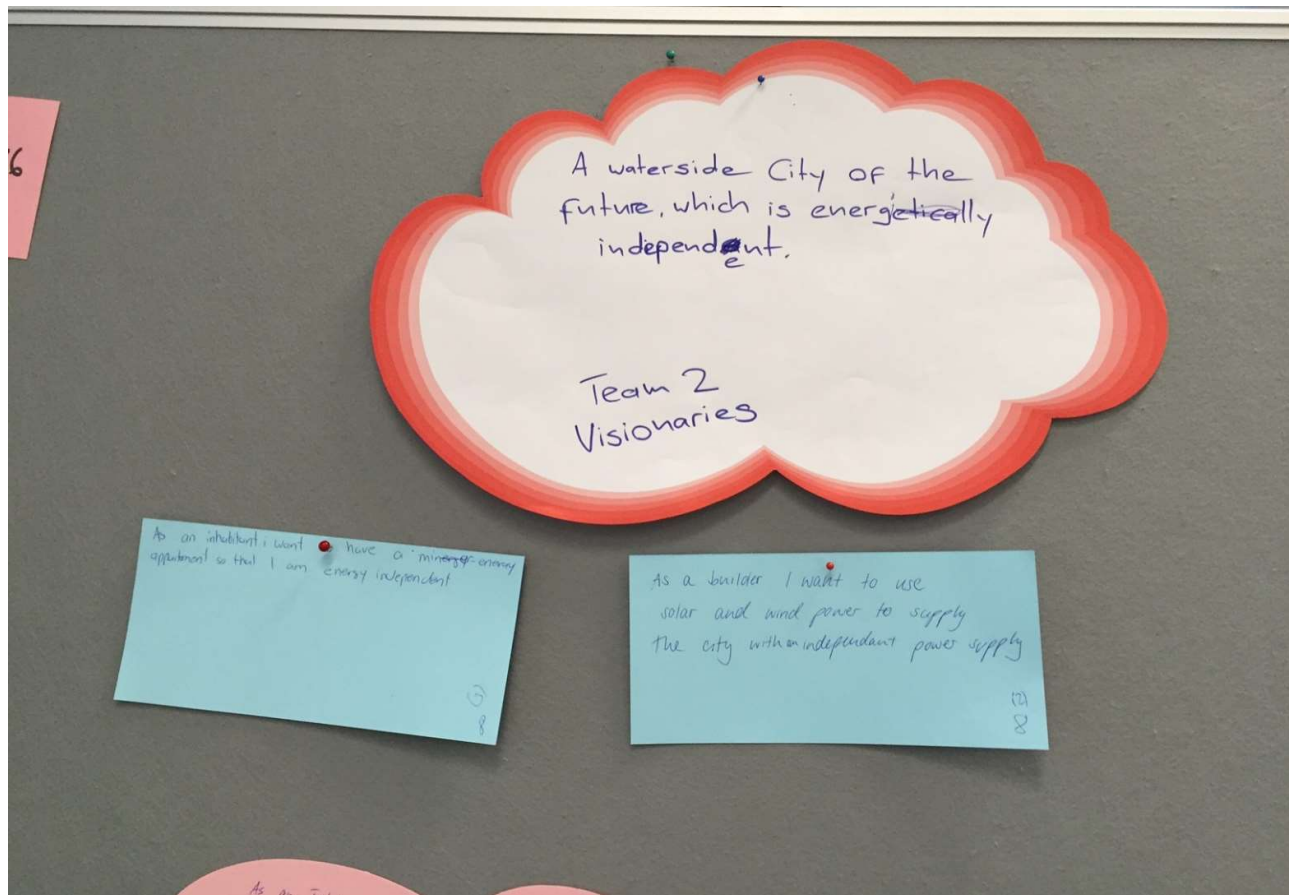 6
A waterside City of the
future, which is energetically
independent.
Team 2
Visionaries
As an inhabitant i want have a energy
appartment so that I am energy independent
8
As a builder I want to use
solar and wind power to supply
the city with an independant power supply
(2)
8
As an